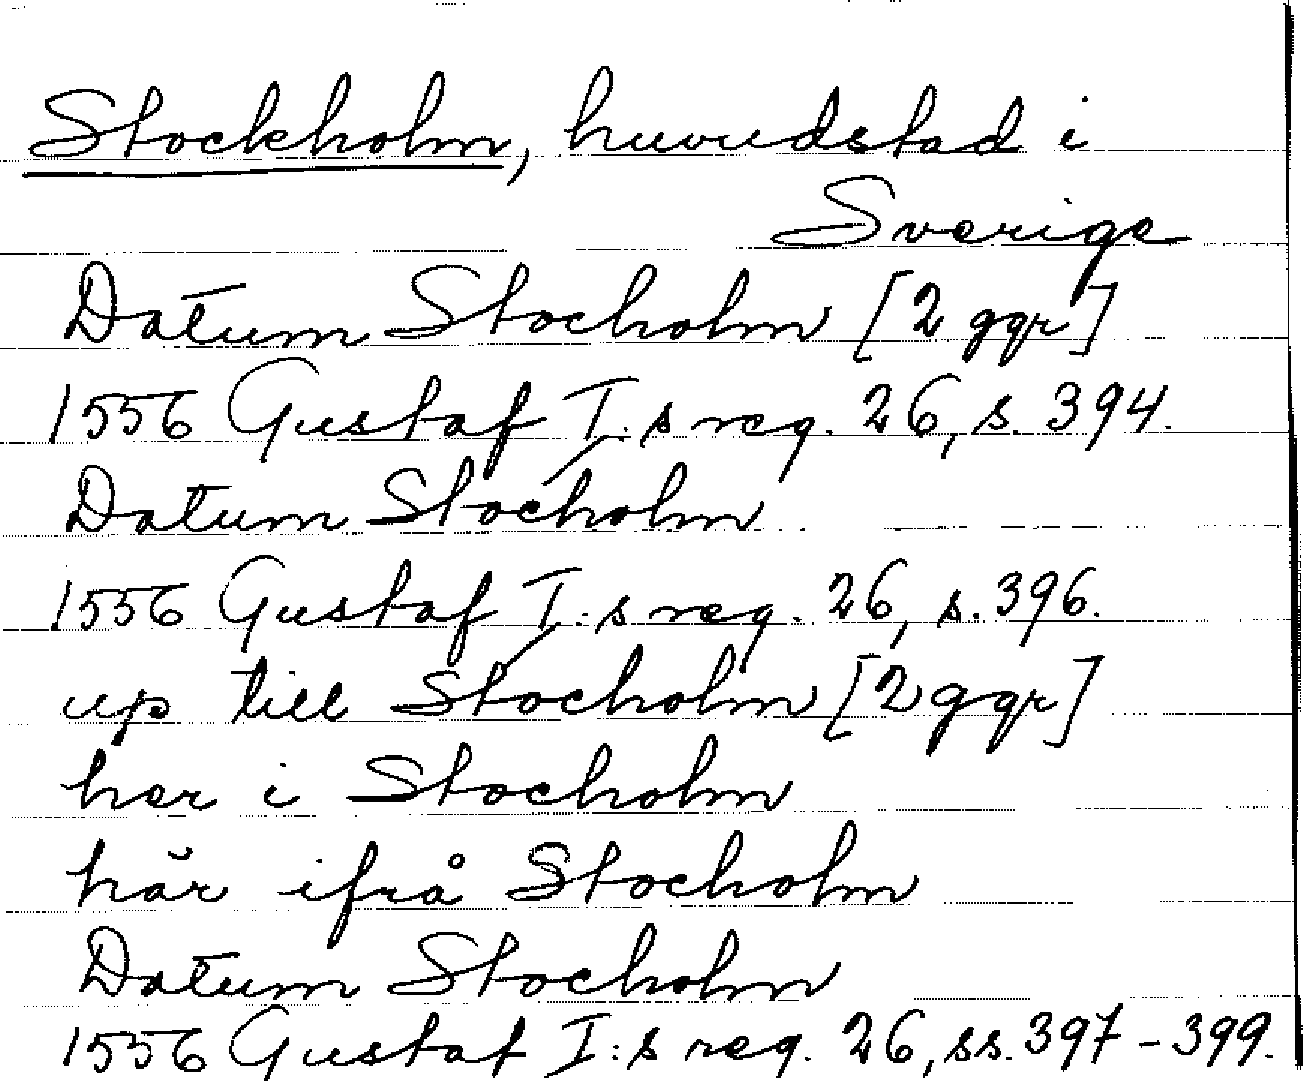 Stockholm, huvudstad i
Sverige
Datum Stocholm [2 ggr]
1556 Gustaf I:s reg. 26, s. 394.
Datum Stocholm
1556 Gustaf I:s reg. 26, s. 396.
up till Stocholm [2 ggr]
her i Stocholm
här ifrå Stocholm
Datum Stocholm
1556 Gustaf I:s reg. 26, ss. 397-399.